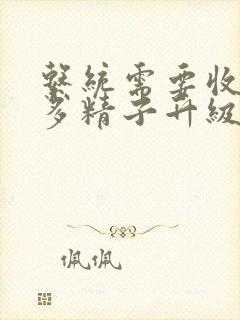 系統需要收
多精子升級
佩佩